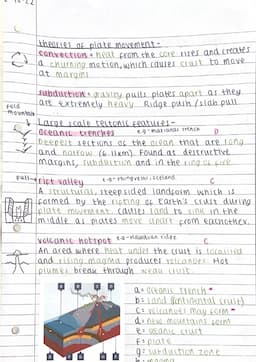 theories of plate movement -
convection - heat from the core rises and creates
a churning motion, which causes crust to move
at margins
subduction - gravity pulls plates apart as they
are extremely heavy. Ridge push / slab pull
fold
mountains
Large scale tectonic features -
Oceanic trenches e.g - marianas trench D
Deepest sections of the ocean that are long
and narrow (6-11km). Found at destructive
margins, subduction and in the ring of fire
rift valley e.g - thingvellir, iceland C
A structural, steepsided landform which is
formed by the rifting of Earth's crust during
plate movement. Causes land to sink in the
middle as plates move apart from eachother.
volcanic hotspot e.g - Hawaiian ridge C
An area where heat under the crust is localised
and rising magma produces volcanoes. Hot
plumes break through weak crust.
a = oceanic trench
b = land (continental crust)
c = volcanoes may form
d = new mountains form
e = oceanic crust
F = plate
g = subduction zone